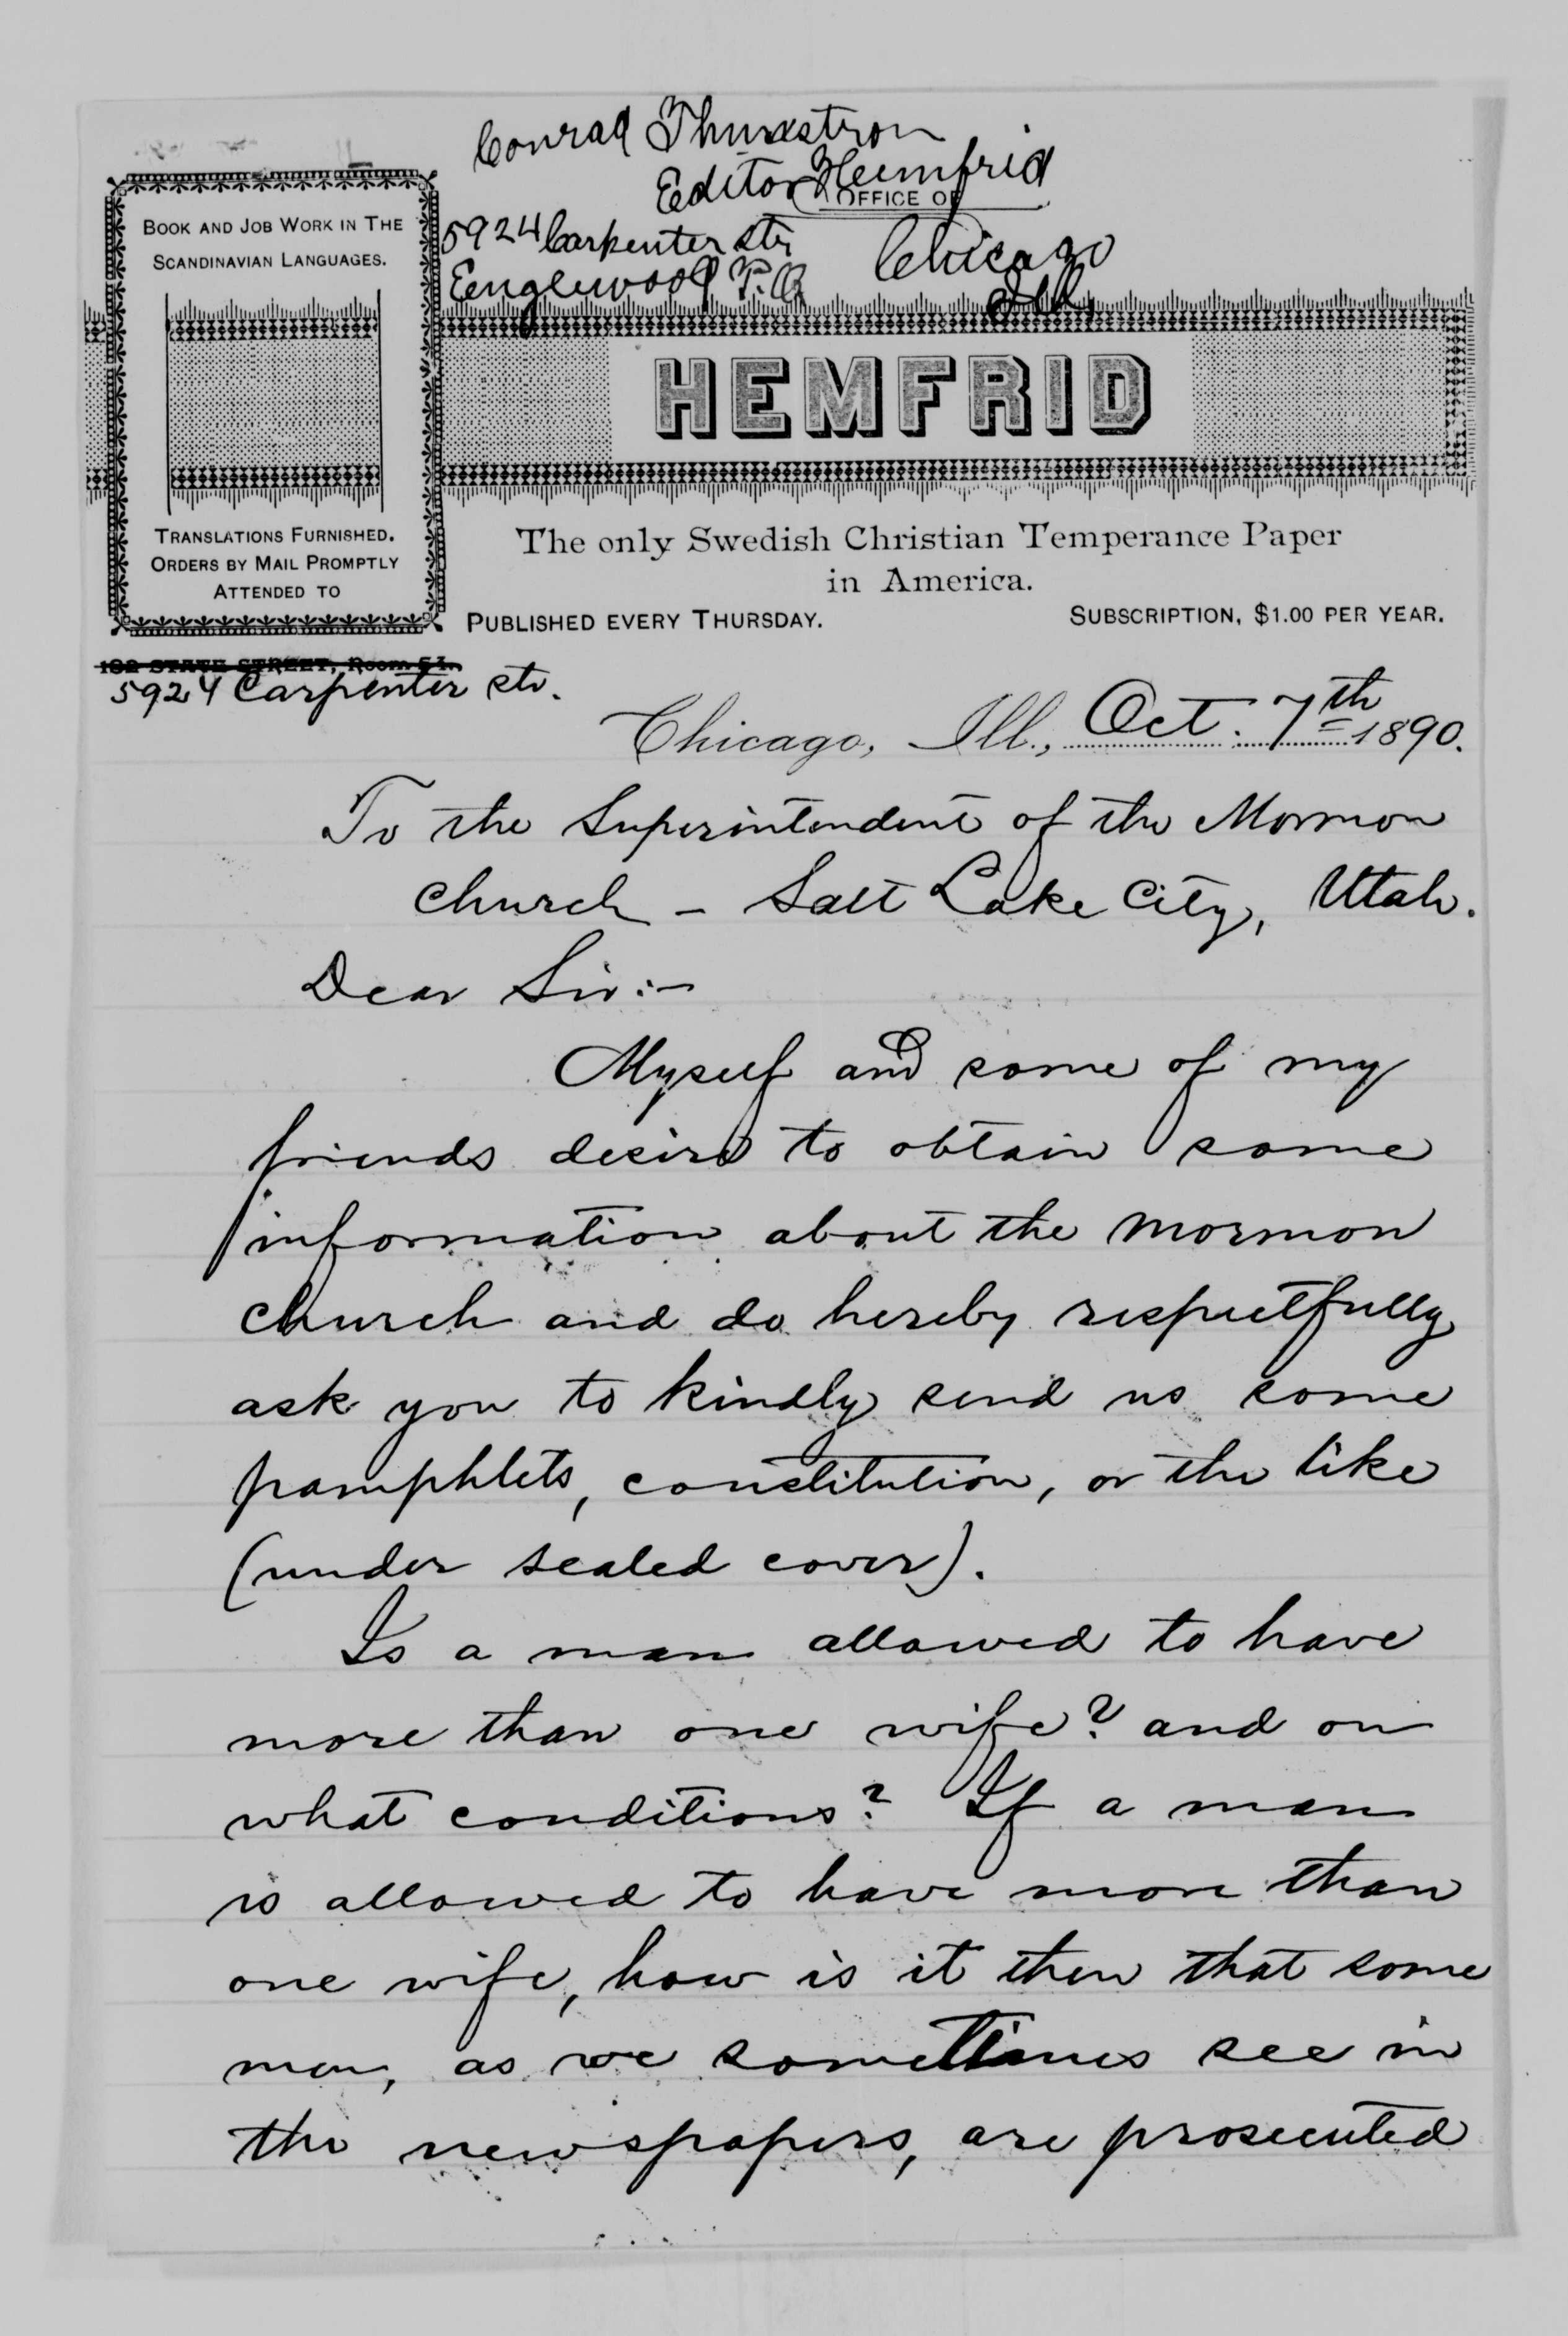 Conrad
Editor Hemfrid
OFFICE OF
5924 Carpenter str
Englewood P.O. Chicago
Ill,
BOOK AND JOB WORK IN THE
SCANDINAVIAN LANGUAGES.
TRANSLATIONS FURNISHED.
ORDERS BY MAIL PROMPTLY
ATTENDED TO
HEMFRID
The only Swedish Christian Temperance Paper
in America.
PUBLISHED EVERY THURSDAY. SUBSCRIPTION, $1.00 PER YEAR.
182 STATE STREET, Room 51.
5924 Carpenter str.
Chicago, Ill., Oct. 7th 1890.
To the Superintendent of the Mormon
church – Salt Lake City, Utah.
Dear Sir:–
Myself and some of my
friends desire to obtain some
information about the mormon
church and do hereby respectfully
ask you to kindly send us some
pamphlets, constitution, or the like
(under sealed cover).
Is a man allowed to have
more than one wife? and on
what conditions? If a man
is allowed to have more than
one wife, how is it then that some
men, as we sometimes see in
the newspapers, are prosecuted